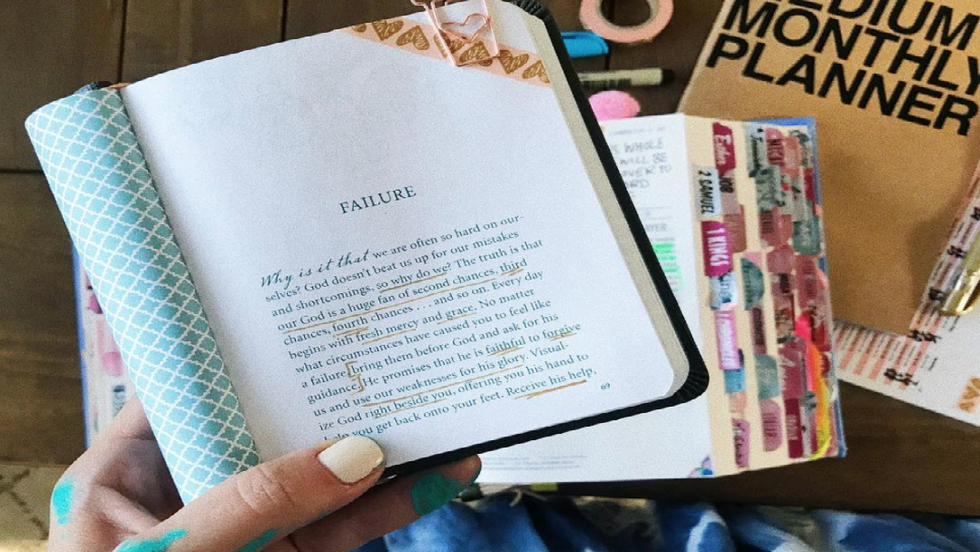 FAILURE
Why is it that we are often so hard on our-
selves? God doesn't beat us up for our mistakes
and shortcomings, so why do we? The truth is that
our God is a huge fan of second chances, third
chances, fourth chances . . . and so on. Every day
begins with fresh mercy and grace. No matter
what circumstances have caused you to feel like
a failure, bring them before God and ask for his
guidance. He promises that he is faithful to forgive
us and use our weaknesses for his glory. Visual-
ize God right beside you, offering you his hand to
help you get back onto your feet. Receive his help,
69
MEDIUM
MONTHLY
PLANNER
WHOLE
WILL BE
Esther
JOB
2 SAMUEL
1 KINGS